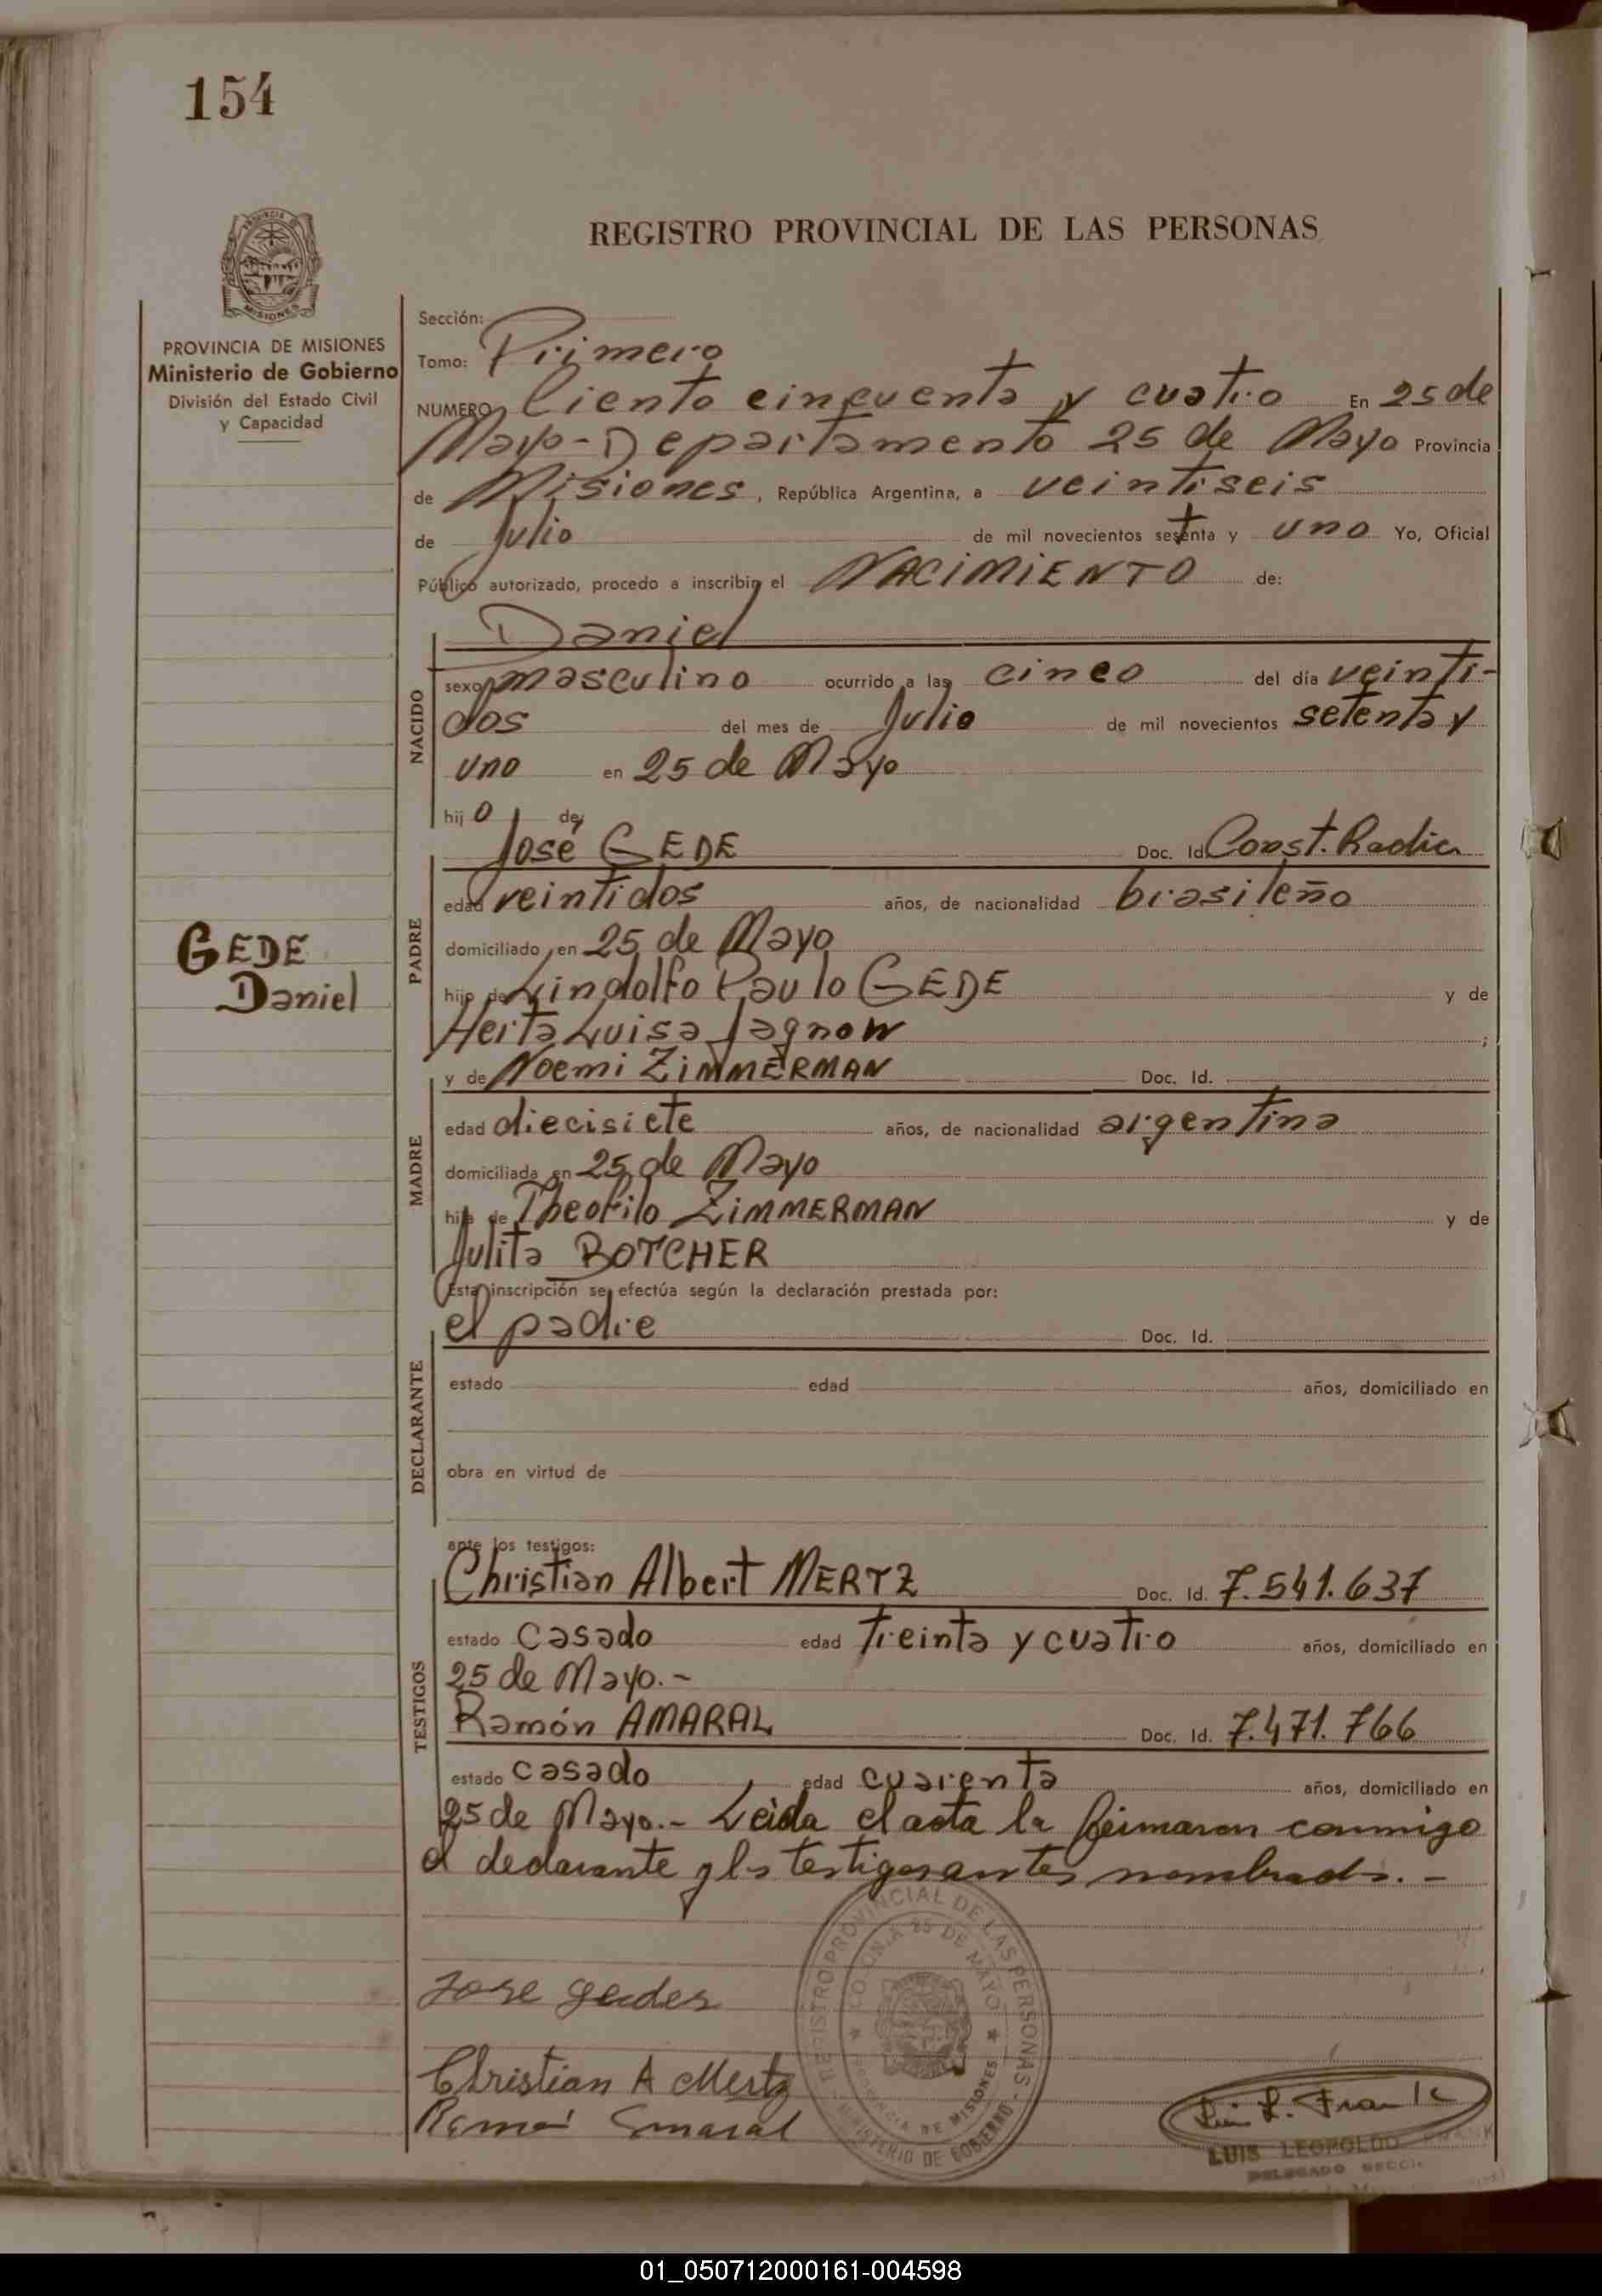 154
PROVINCIA DE
MISIONES
REGISTRO PROVINCIAL DE LAS PERSONAS
PROVINCIA DE MISIONES
Ministerio de Gobierno
División del Estado Civil
y Capacidad
Sección:
Tomo: Primero
NUMERO Ciento cincuenta y cuatro En 25 de
Mayo - Departamento 25 de Mayo Provincia
de Misiones, República Argentina, a veintiseis
de Julio de mil novecientos setenta y uno Yo, Oficial
Público autorizado, procedo a inscribir el NACIMIENTO de:
Daniel
NACIDO
sexo masculino ocurrido a las cinco del día veinti-
dos del mes de Julio de mil novecientos setenta y
uno en 25 de Mayo
hij o de
José GEDE Doc. Id. Const. Radic
PADRE
edad veintidos años, de nacionalidad brasileño
domiciliado en 25 de Mayo
hijo de Lindolfo Paulo GEDE y de
Herta Luisa Jagnow ;
y de Noemi ZIMMERMAN Doc. Id.
GEDE
Daniel
MADRE
edad diecisiete años, de nacionalidad argentina
domiciliada en 25 de Mayo
hija de Theofilo ZIMMERMAN y de
Julita BOTCHER
Esta inscripción se efectúa según la declaración prestada por:
el padre Doc. Id.
DECLARANTE
estado edad años, domiciliado en
obra en virtud de
ante los testigos:
Christian Albert MERTZ Doc. Id. 7.541.637
TESTIGOS
estado casado edad treinta y cuatro años, domiciliado en
25 de Mayo.-
Ramón AMARAL Doc. Id. 7.471.766
estado casado edad cuarenta años, domiciliado en
25 de Mayo.- Leida el acta la firmaron conmigo
el declarante y los testigos antes nombrados.-
REGISTRO PROVINCIAL DE LAS PERSONAS - MINISTERIO DE GOBIERNO -
COLONIA 25 DE MAYO
PROVINCIA DE MISIONES
Jose Gedes
Christian A Mertz
Ramon Amaral
Luis L. Frank
LUIS LEOPOLDO FRANK
DELEGADO
01_050712000161-004598